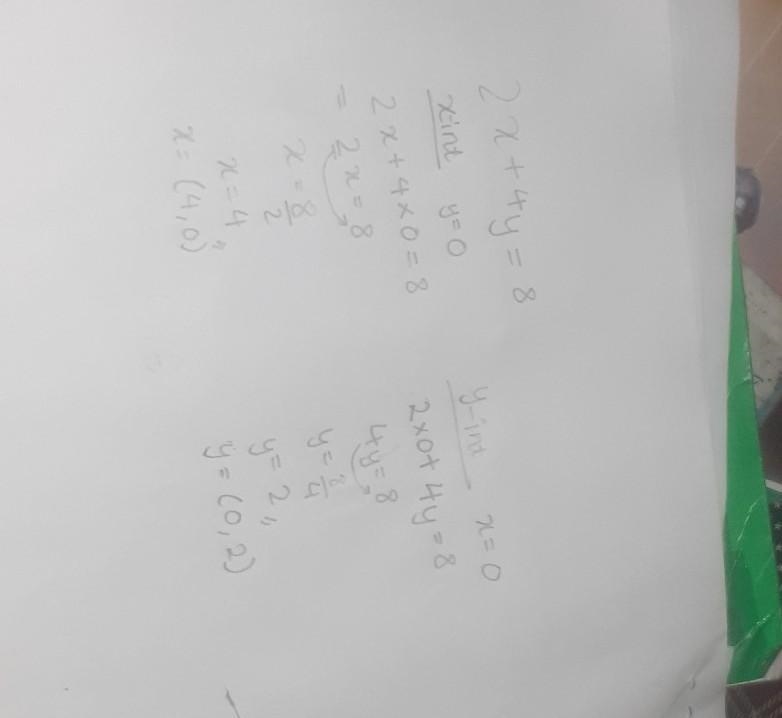 2x + 4y = 8
x-int y=0
2x + 4 × 0 = 8
= 2x = 8
x = 8/2
x = 4"
x = (4,0)
y-int x=0
2×0+ 4y = 8
4y = 8
y = 8/4
y = 2"
y = (0,2)